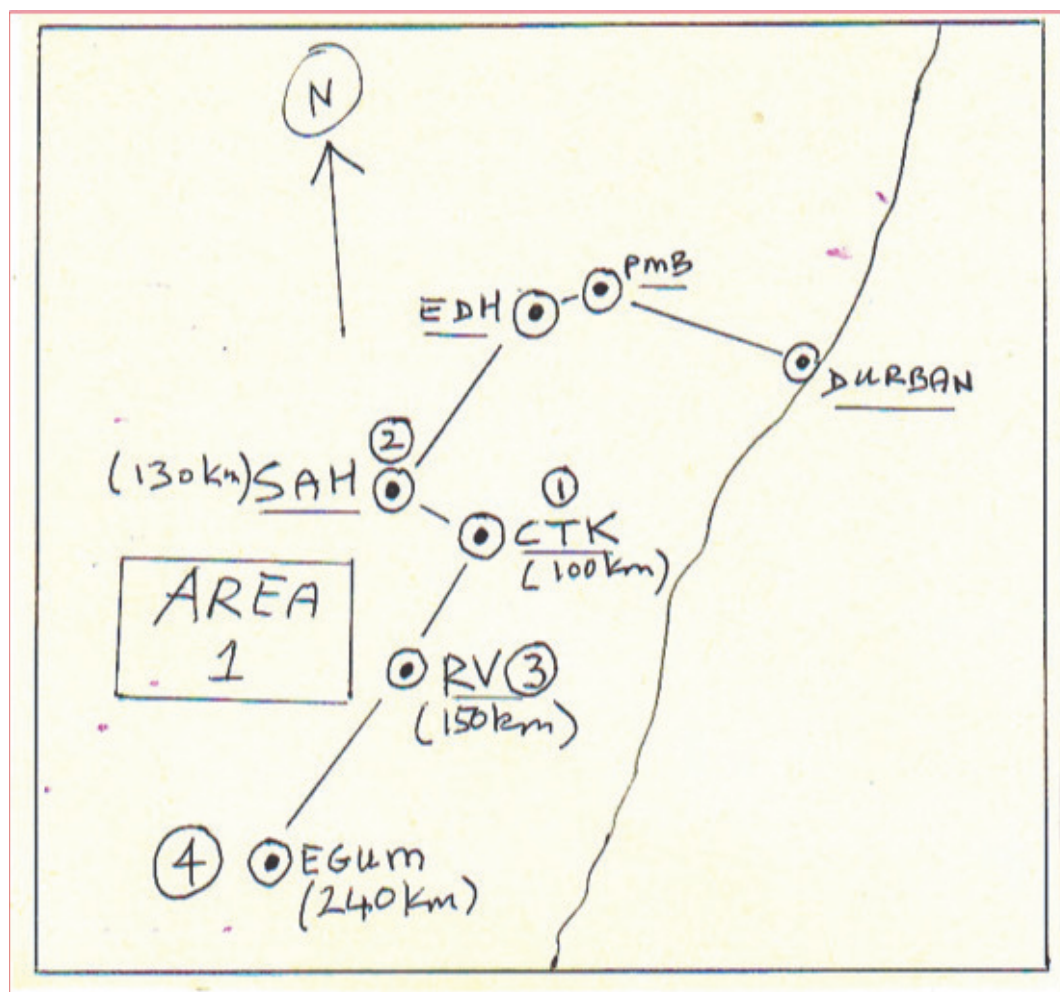 N
PMB
EDH
DURBAN
②
(130km) SAH
①
CTK
(100km)
AREA
1
RV ③
(150km)
④ EGUM
(240km)